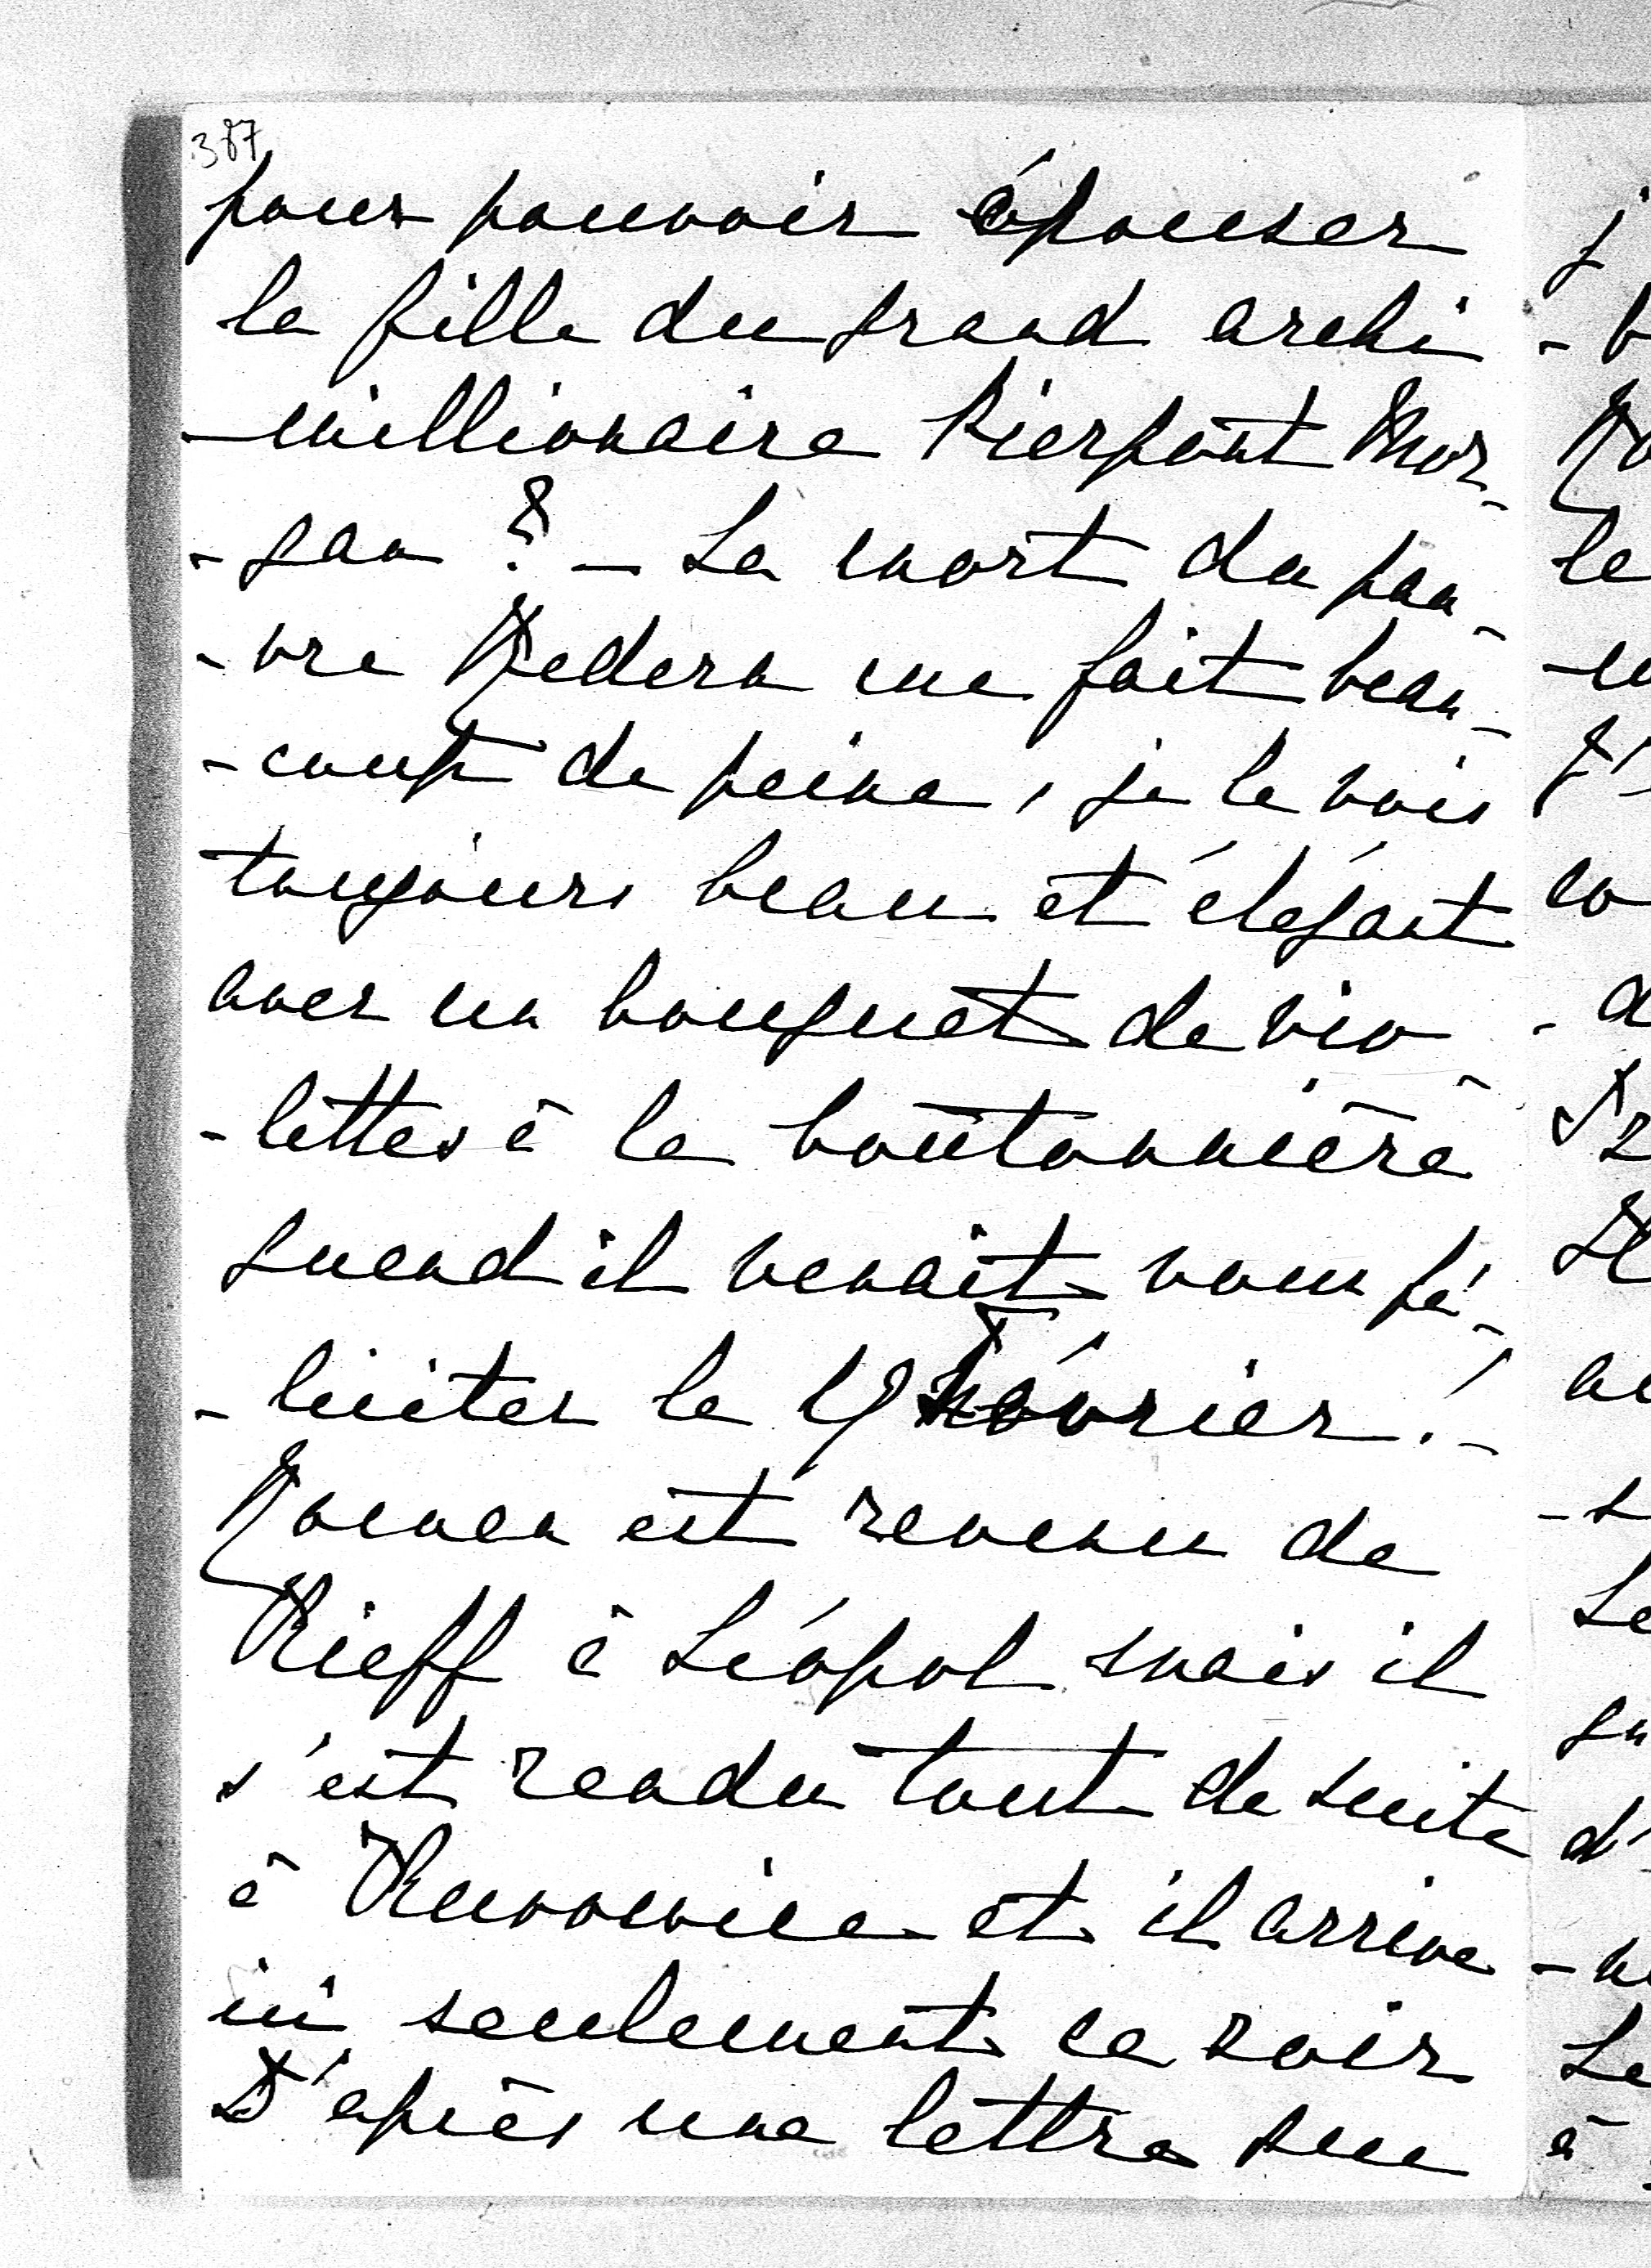 387
pour pouvoir épouser
la fille du grand archi
-millionaire Pierpont Mor-
-gan ? - La mort du pau-
-vre Medem me fait beau-
-coup de peine, je le vois
toujours beau et élégant
avec un bouquet de vio
-lettes à la boutonnière
quand il venait nous fé-
-liciter le 19 février. -
est revenu de
Kieff à Léopol mais il
s'est rendu tout de suite
à et il arrive
ici seulement ce soir
D'après une lettre que